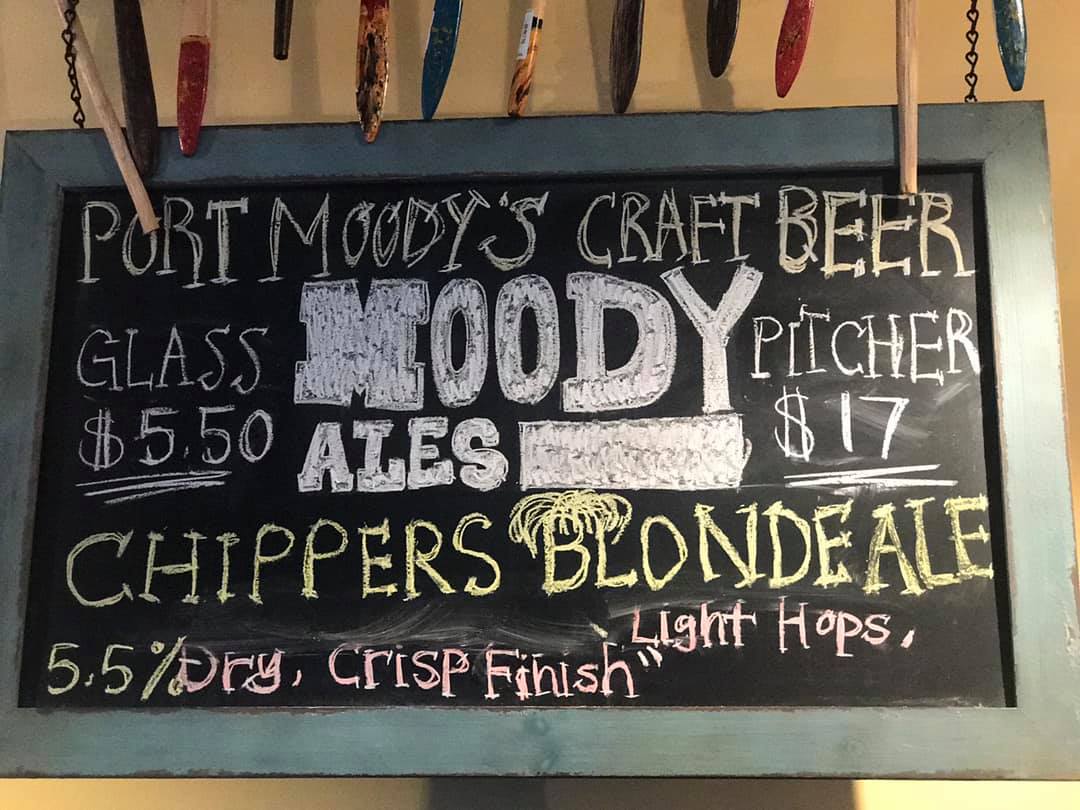 PORT MOODY'S CRAFT BEER
MOODY
ALES
GLASS
$5.50
PITCHER
$17
CHIPPERS BLONDE ALE
Light Hops,
5.5% Dry, Crisp Finish"